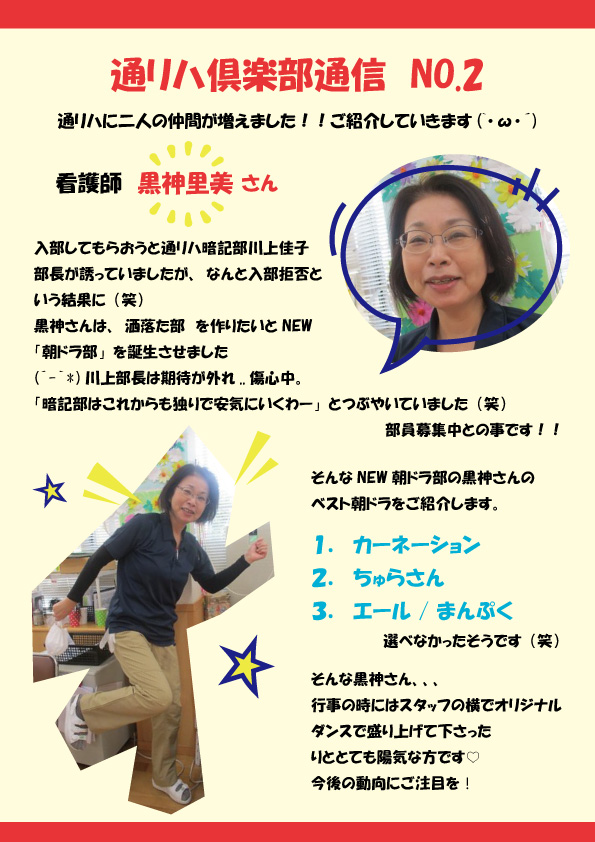 通リハ倶楽部通信 NO.2
通リハに二人の仲間が増えました！！ご紹介していきます(｀・ω・´)
看護師 黒神里美 さん
入部してもらおうと通リハ暗記部川上佳子
部長が誘っていましたが、なんと入部拒否と
いう結果に（笑）
黒神さんは、洒落た部 を作りたいと NEW
「朝ドラ部」を誕生させました
(´-｀*)川上部長は期待が外れ..傷心中。
「暗記部はこれからも独りで安気にいくわー」とつぶやいていました（笑）
部員募集中との事です！！
そんな NEW 朝ドラ部の黒神さんの
ベスト朝ドラをご紹介します。
1. カーネーション
2. ちゅらさん
3. エール / まんぷく
選べなかったそうです（笑）
そんな黒神さん、、、
行事の時にはスタッフの横でオリジナル
ダンスで盛り上げて下さった
りととても陽気な方です♡
今後の動向にご注目を！